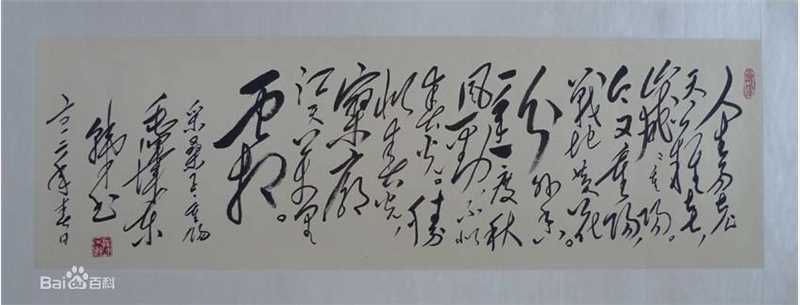 人生易老
天难老，
岁岁重阳。
今又重阳，
戰地黄花
分外香。
一年一度秋
风劲，不似
春光。胜
似春光，
寥廓
江天万里
霜。
采桑子·重阳
毛泽东
书
年春日
Bai百科